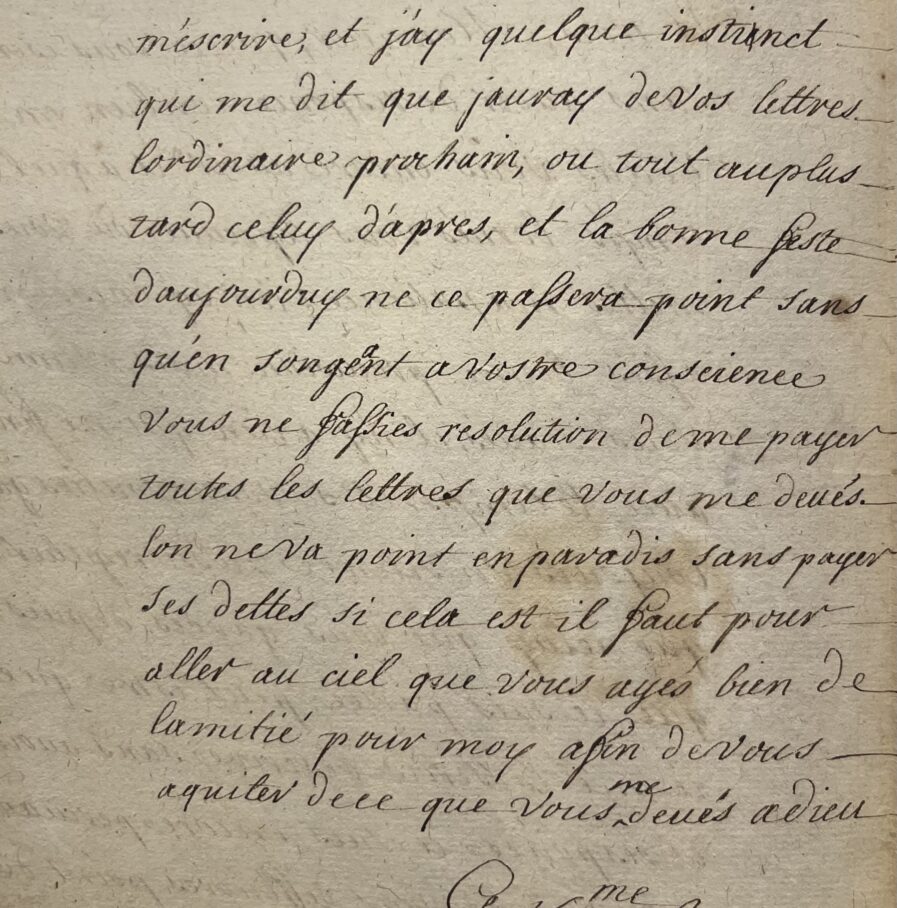 m'escrire, et j'ay quelque instinct
qui me dit que jauray de vos lettres
lordinaire prochain, ou tout au plus
tard celuy d'apres, et la bonne feste
daujourduy ne ce passera point sans
qu'en songent a vostre conscience
vous ne fassies resolution de me payer
toutes les lettres que vous me devés.
lon ne va point en paradis sans payer
ses dettes si cela est il faut pour
aller au ciel que vous ayés bien de
lamitié pour moy afin de vous
aquiter de ce que vous me devés adieu
me